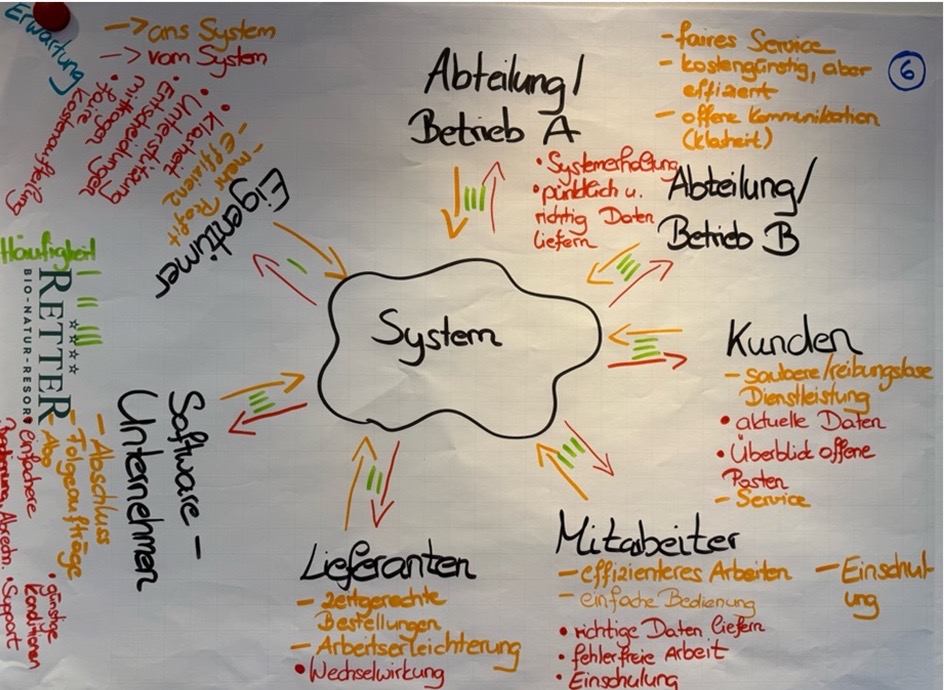 Erwartung
-> ans System
-> vom System
Abteilung/
Betrieb A
- faires Service
- kostengünstig, aber
effizient
- offene Kommunikation
(Klarheit)
6
• Systemerhaltung
• pünktlich u.
richtig Daten
liefern
Abteilung/
Betrieb B
Eigentümer
- mehr Profit
- effizienz
• Klarheit
• Unterstützung
• Entscheidungen
mittragen
• faire
Kostenaufteilung
Häufigkeit
RETTER
BIO-NATUR-RESORT
System
Kunden
- saubere/reibungslose
Dienstleistung
• aktuelle Daten
• Überblick offene
Posten
- Service
Software-
Unternehmen
- Abschluss
- Folgeaufträge
- Abo
• einfachere
Bedienung, Abrechn.
• günstige
Konditionen
• Support
Lieferanten
- zeitgerechte
Bestellungen
- Arbeitserleichterung
• Wechselwirkung
Mitarbeiter
- effizienteres Arbeiten
- einfache Bedienung
- Einschul-
ung
• richtige Daten liefern
• fehlerfreie Arbeit
• Einschulung